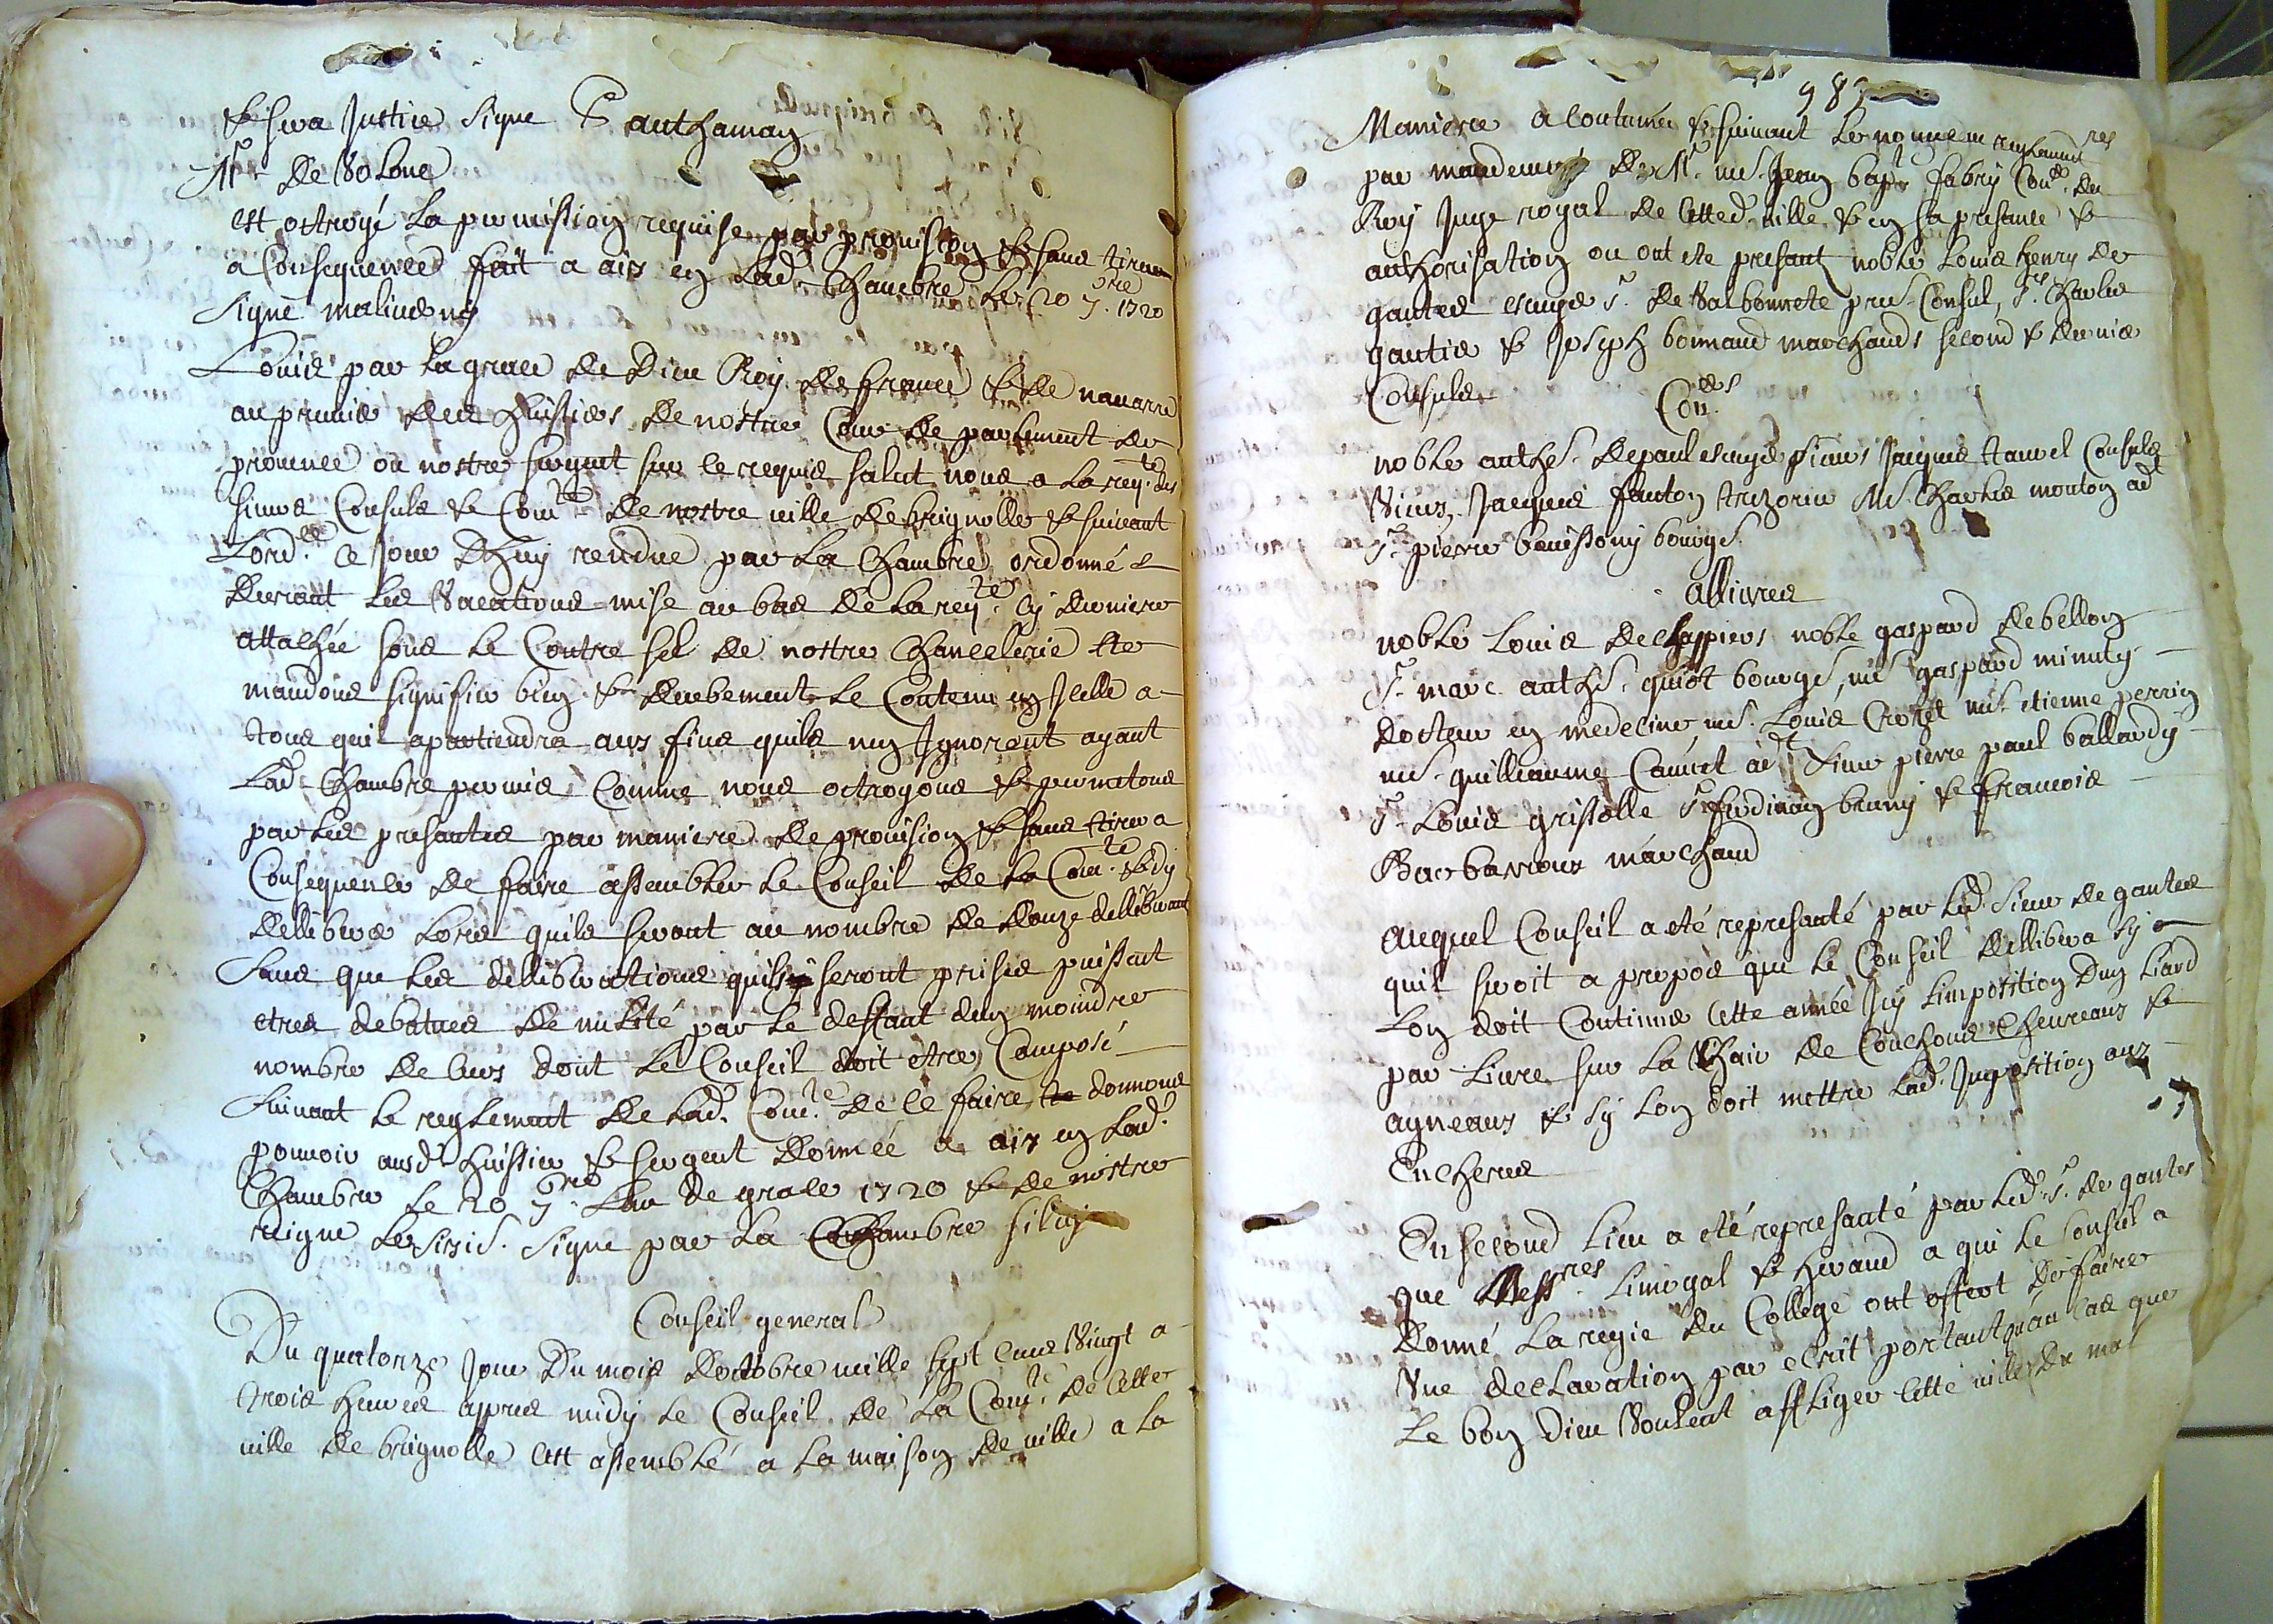 & sera Justice Signé authaman
Mr De Volone
est octroyé La permission requise par provision & sans tirer
a Consequence fait a aix en Lad. Chambre Le 20 7bre 1720
Signé maliverny
Louis par La grace De Dieu Roy De france & De navarre
au premier Des huissiers De nostre Cour De parlement De
provence ou nostre sergent sur ce requis salut nous a La reqte des
sieurs Consuls & Comte De nostre ville De brignolle & suivant
Lordce ce jour Dhuy rendue par La Chambre ordonné
Durant Les Vacations mise au bas De La reqte Cy Derniere
attachée sous Le Contre sel De nostre Chancelerie te
mandons signifier bien & Deubement Le Contenu en Icelle a
tous quil apartiendra aux fins quils nen Ignorent ayant
Lad. Chambre permis Comme nous octroyons & permetons
par Les presantes par maniere De provision & sans tirer a
Consequence De faire assembler Le Conseil De La Comte & Dy
Deliberer Lors quils seront au nombre De Douze deliberants
sans que Les deliberations quils y seront prises puissent
etres debatues De nullité par Le deffaut dun moindre
nombre De ceux dont Le Conseil doit etre Composé
suivant Le reglement De Lad. Comte De ce faire te donnons
pouvoir ausd. huissier & sergent Donnée a aix en Lad.
Chambre Le 20 7bre Lan De grace 1720 & De nostre
reigne Le sixie. Signé par La Chambre silvy
Conseil general
Du quatorze Jour Du mois Doctobre mille sept cens Vingt a
trois heures appres midy Le Conseil De La Comte De cette
ville De brignolle cest assemblé a La maison De ville a La
983
Maniere acoutumée & suivant Le nouveau reglement
par mandement De Mr me Jean bapte fabry Conser Du
Roy Juge royal De cetted. ville & en sa presance &
authorisation ou ont ete presant noble Louis henry De
gantes escuyer sr De Valbonnete premr Consul, srs Charles
gantier & Joseph bonnaud marchands second & dernier
Consuls
Conrs
noble anthe. Depaul escuyer sieurs Jaques tauvel Consuls
Vieux, Jacques fanton trezorier Me. Charles mouton adt
sr pierre bouissony bourgs.
allivres
noble Louis De Clappiers noble gaspard Debellon
sr marc anthe. quiot bourgs, me gaspard minuty
Docteur en medecine, me. Louis Crozet me. etienne perrin
me. guilleaume Cauvet adt sieur pierre paul ballardy
sr Louis grisolle sr ferdinan bruny & francois
Barbarroux marchand
auquel Conseil a eté represanté par Led. sieur De gantes
quil seroit a propos que Le Conseil Delibera sy
Lon doit Continuer cette année Icy Limposition Dun Liard
par Livre sur La Chair De Couchons Chevreaux &
agneaux & sy Lon doit mettre Lad. Imposition aux
Encheres
En second Lieu a eté represanté par Led. sr De gantes
que Messres Limogal & heraud a qui Le Conseil a
Donné La regie Du College ont offert De faire
Vne declaration par ecrit portant quan cas que
Le bon Dieu Voulent affliger cette ville Du mal